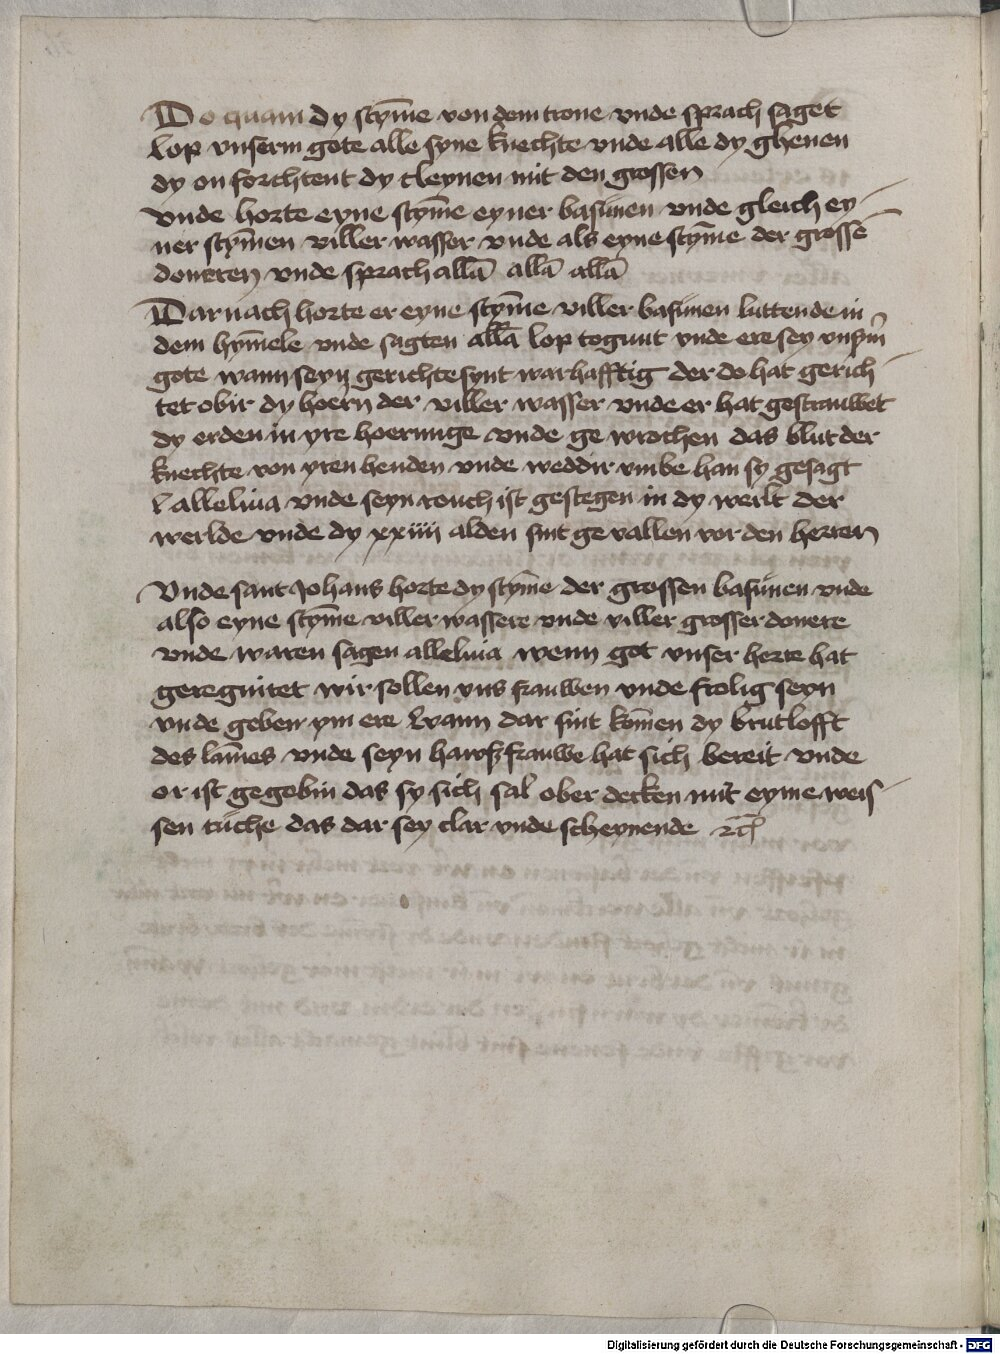 Do quam dy stȳme von dem trone vnde sprach saget
lop vnserm gote alle syne knechte vnde alle dy ghenen
dy on forchtent dy cleynen mit den grossen
vnde horte eyne stȳme eyner basunen vnde gleich ey-
ner stȳmen viller wasser vnde als eyne stȳme der grossē
doneren vnde sprach allā allā allā
Darnach horte er eyne stȳme viller basunen luttende in
dem hȳmele vnde sagten allā lop togunt vnde ere sey
gote wann seyn gerichte synt warhafftig der do hat gerich-
tet obir dy hoern der viller wasser vnde er hat gestrauwet
dy erden in yre hoerunge vnde ge wrochen das blut der
knechte von yren henden vnde weddir vmbe han sy gesagt
alleluia vnde seyn rouch ist gestegen in dy werlt der
werlde vnde dy xxiiii alden sint ge vallen vor den herren
Vnde sant Johans horte dy stȳme der grossen basunen vnde
also eyne stȳme viller wassere vnde viller grosser donere
vnde waren sagen alleluia wenn got vnser herre hat
geregnitet wir sollen vns frauwen vnde frolig seyn
vnde geben ym ere wann dar sint kom̄en dy brutlofft
des lam̄es vnde seyn hawsfrauwe hat sich bereit vnde
or ist gegebin das sy sich sal ober decken mit eyme weis-
sen tuche das dar sey clar vnde scheynende
Digitalisierung gefördert durch die Deutsche Forschungsgemeinschaft - DFG